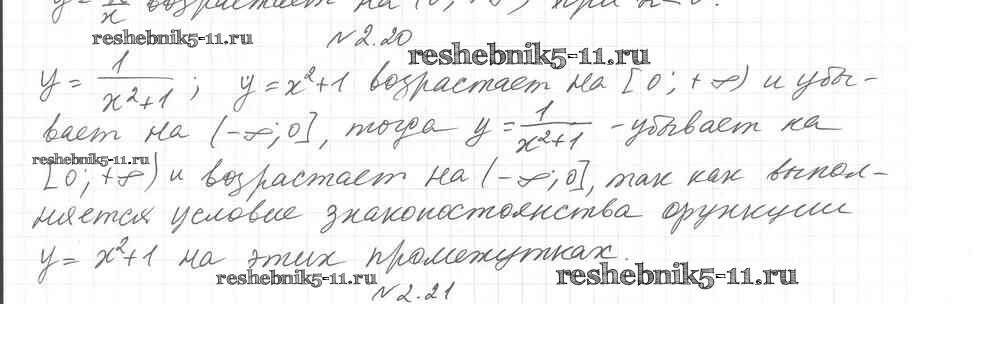 возрастает на
reshebnik5-11.ru
N 2.20
reshebnik5-11.ru
y = 1/(x²+1) ; y = x²+1 возрастает на [0; +∞) и убы-
вает на (-∞; 0], тогда y = 1/(x²+1) - убывает на
reshebnik5-11.ru
[0; +∞) и возрастает на (-∞; 0], так как выпол-
няется условие знакопостоянства функции
y = x²+1 на этих промежутках.
reshebnik5-11.ru
reshebnik5-11.ru
N 2.21